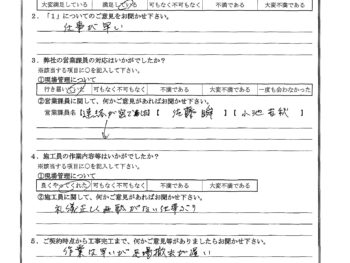 大変満足している 満足している 可もなく不可もなく 不満である 大変不満である
2．「1」についてのご意見をお聞かせ下さい。
仕事が早い
3．弊社の営業課員の対応はいかがでしたか？
※該当する項目に○を記入して下さい。
①現場管理について
行き届いていた 可もなく不可もなく 不満である 大変不満である 一度も会わなかった
②営業課員に関して、何かご意見があればお聞かせ下さい。
営業課員名【連絡が】【佐藤 】【小池 】
4．施工員の作業内容等はいかがでしたか？
※該当する項目に○を記入して下さい。
①現場管理について
良くやってくれた 可もなく不可もなく 不満である 大変不満である
②施工員に関して、何かご意見があればお聞かせ下さい。
礼儀正しい 無駄がない仕事ぶり
5．ご契約時点から工事完工まで、何かご意見等がありましたらお聞かせ下さい。
作業は早いが足場撤去が遅い